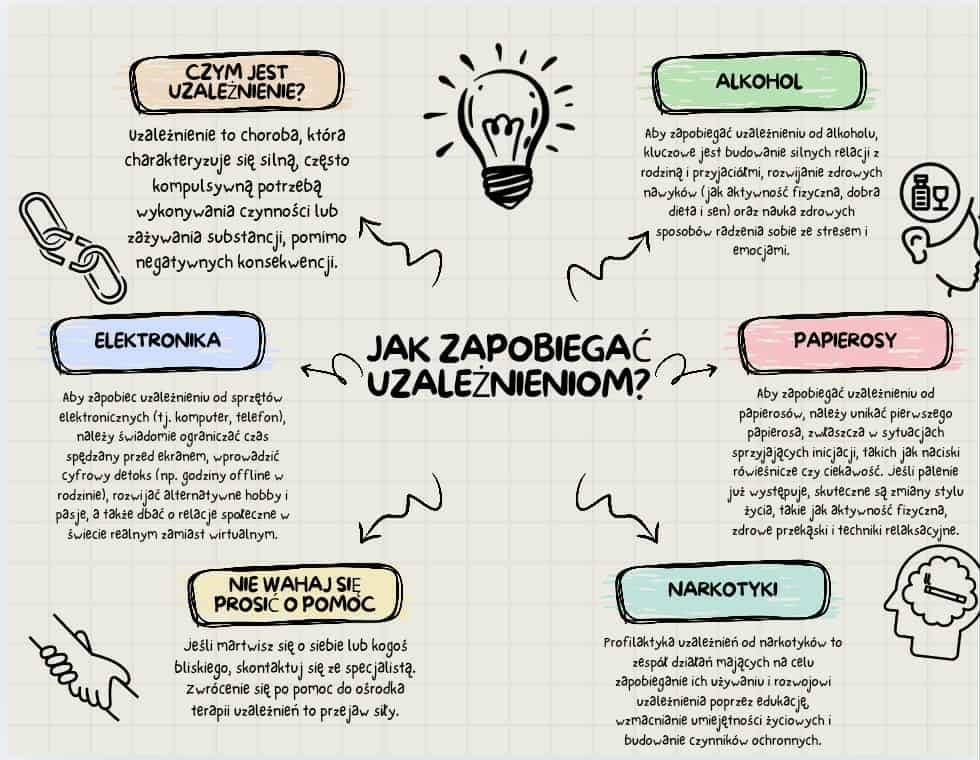 CZYM JEST
UZALEŻNIENIE?
Uzależnienie to choroba, która
charakteryzuje się silną, często
kompulsywną potrzebą
wykonywania czynności lub
zażywania substancji, pomimo
negatywnych konsekwencji.
ALKOHOL
Aby zapobiegać uzależnieniu od alkoholu,
kluczowe jest budowanie silnych relacji z
rodziną i przyjaciółmi, rozwijanie zdrowych
nawyków (jak aktywność fizyczna, dobra
dieta i sen) oraz nauka zdrowych
sposobów radzenia sobie ze stresem i
emocjami.
JAK ZAPOBIEGAĆ
UZALEŻNIENIOM?
ELEKTRONIKA
Aby zapobiec uzależnieniu od sprzętów
elektronicznych (tj. komputer, telefon),
należy świadomie ograniczać czas
spędzany przed ekranem, wprowadzić
cyfrowy detoks (np. godziny offline w
rodzinie), rozwijać alternatywne hobby i
pasje, a także dbać o relacje społeczne w
świecie realnym zamiast wirtualnym.
PAPIEROSY
Aby zapobiegać uzależnieniu od
papierosów, należy unikać pierwszego
papierosa, zwłaszcza w sytuacjach
sprzyjających inicjacji, takich jak naciski
rówieśnicze czy ciekawość. Jeśli palenie
już występuje, skuteczne są zmiany stylu
życia, takie jak aktywność fizyczna,
zdrowe przekąski i techniki relaksacyjne.
NIE WAHAJ SIĘ
PROSIĆ O POMOC
Jeśli martwisz się o siebie lub kogoś
bliskiego, skontaktuj się ze specjalistą.
Zwrócenie się po pomoc do ośrodka
terapii uzależnień to przejaw siły.
NARKOTYKI
Profilaktyka uzależnień od narkotyków to
zespół działań mających na celu
zapobieganie ich używaniu i rozwojowi
uzależnienia poprzez edukację,
wzmacnianie umiejętności życiowych i
budowanie czynników ochronnych.